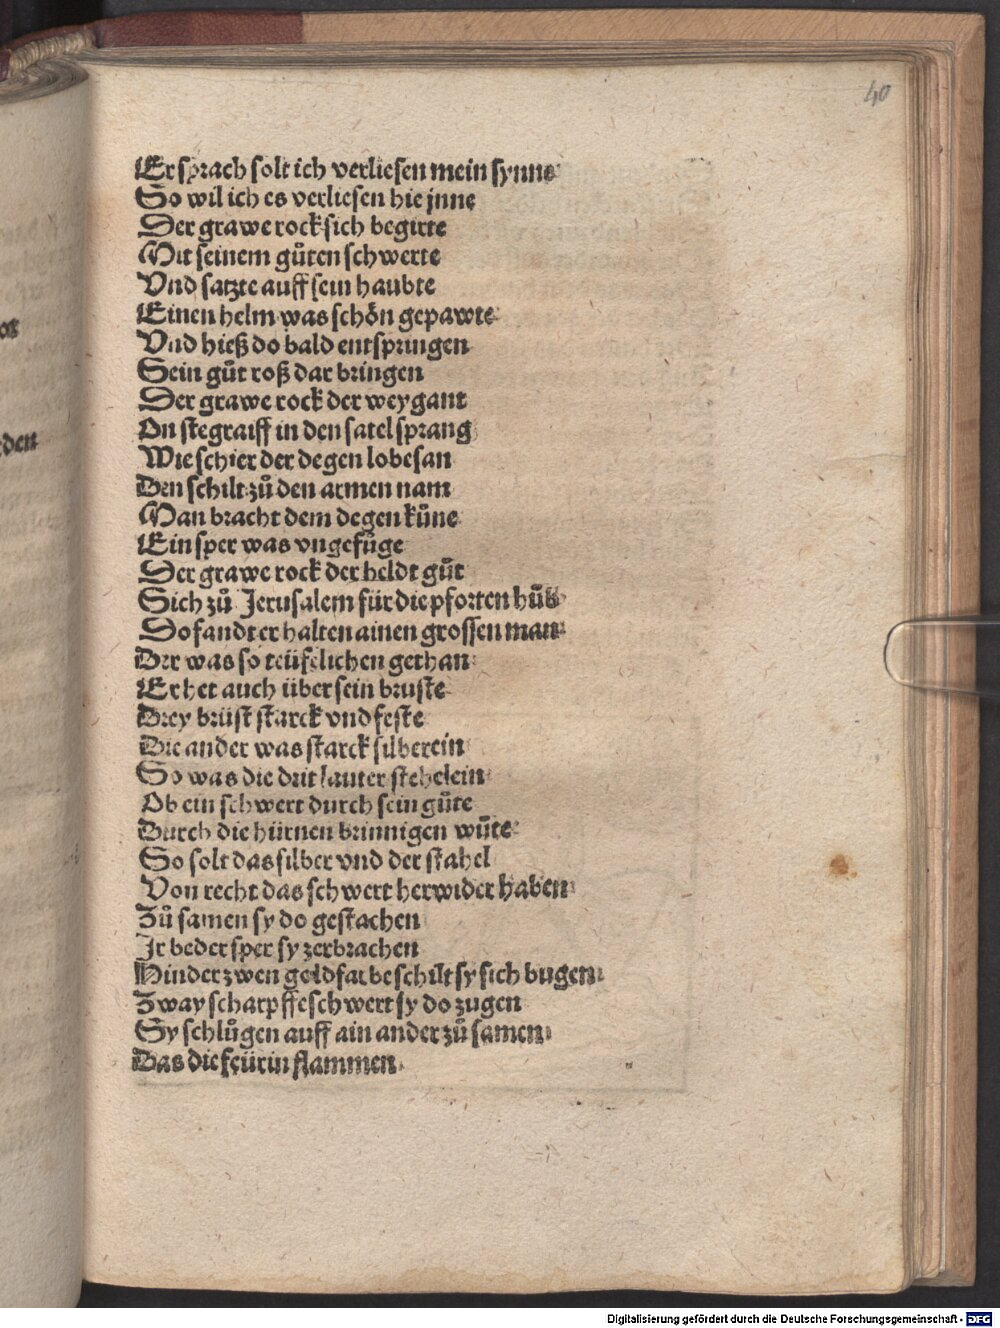 40
Er sprach solt ich verliesen mein synne
So wil ich es verliesen hie jnne
Der grawe rock sich begirte
Mit seinem gůten schwerte
Vnd satzte auff sein haubte
Einen helm was schön gepawte
Vnd hieß do bald entspringen
Sein gůt roß dar bringen
Der grawe rock der weygant
On stegraiff in den satel sprang
Wie schier der degen lobesan
Den schilt zů den armen nam
Man bracht dem degen kůne
Ein sper was vngefůge
Der grawe rock der heldt gůt
Sich zů Jerusalem für die pforten hůb
Do fandt er halten ainen grossen man
Der was so teüfelichen gethan
Er het auch über sein bruste
Drey brüst starck vnd feste
Die ander was starck silberein
So was die drit lauter stehelein
Ob ein schwert durch sein gůte
Durch die hürnen brinnigen wůte
So solt das silber vnd der stahel
Von recht das schwert herwider haben
Zů samen sy do gestachen
Jr beder sper sy zerbrachen
Hinder zwen goldfarbe schilt sy sich bugen
Zway scharpffe schwert sy do zugen
Sy schlůgen auff ain ander zů samen
Das die feürin flammen
den
Digitalisierung gefördert durch die Deutsche Forschungsgemeinschaft - DFG